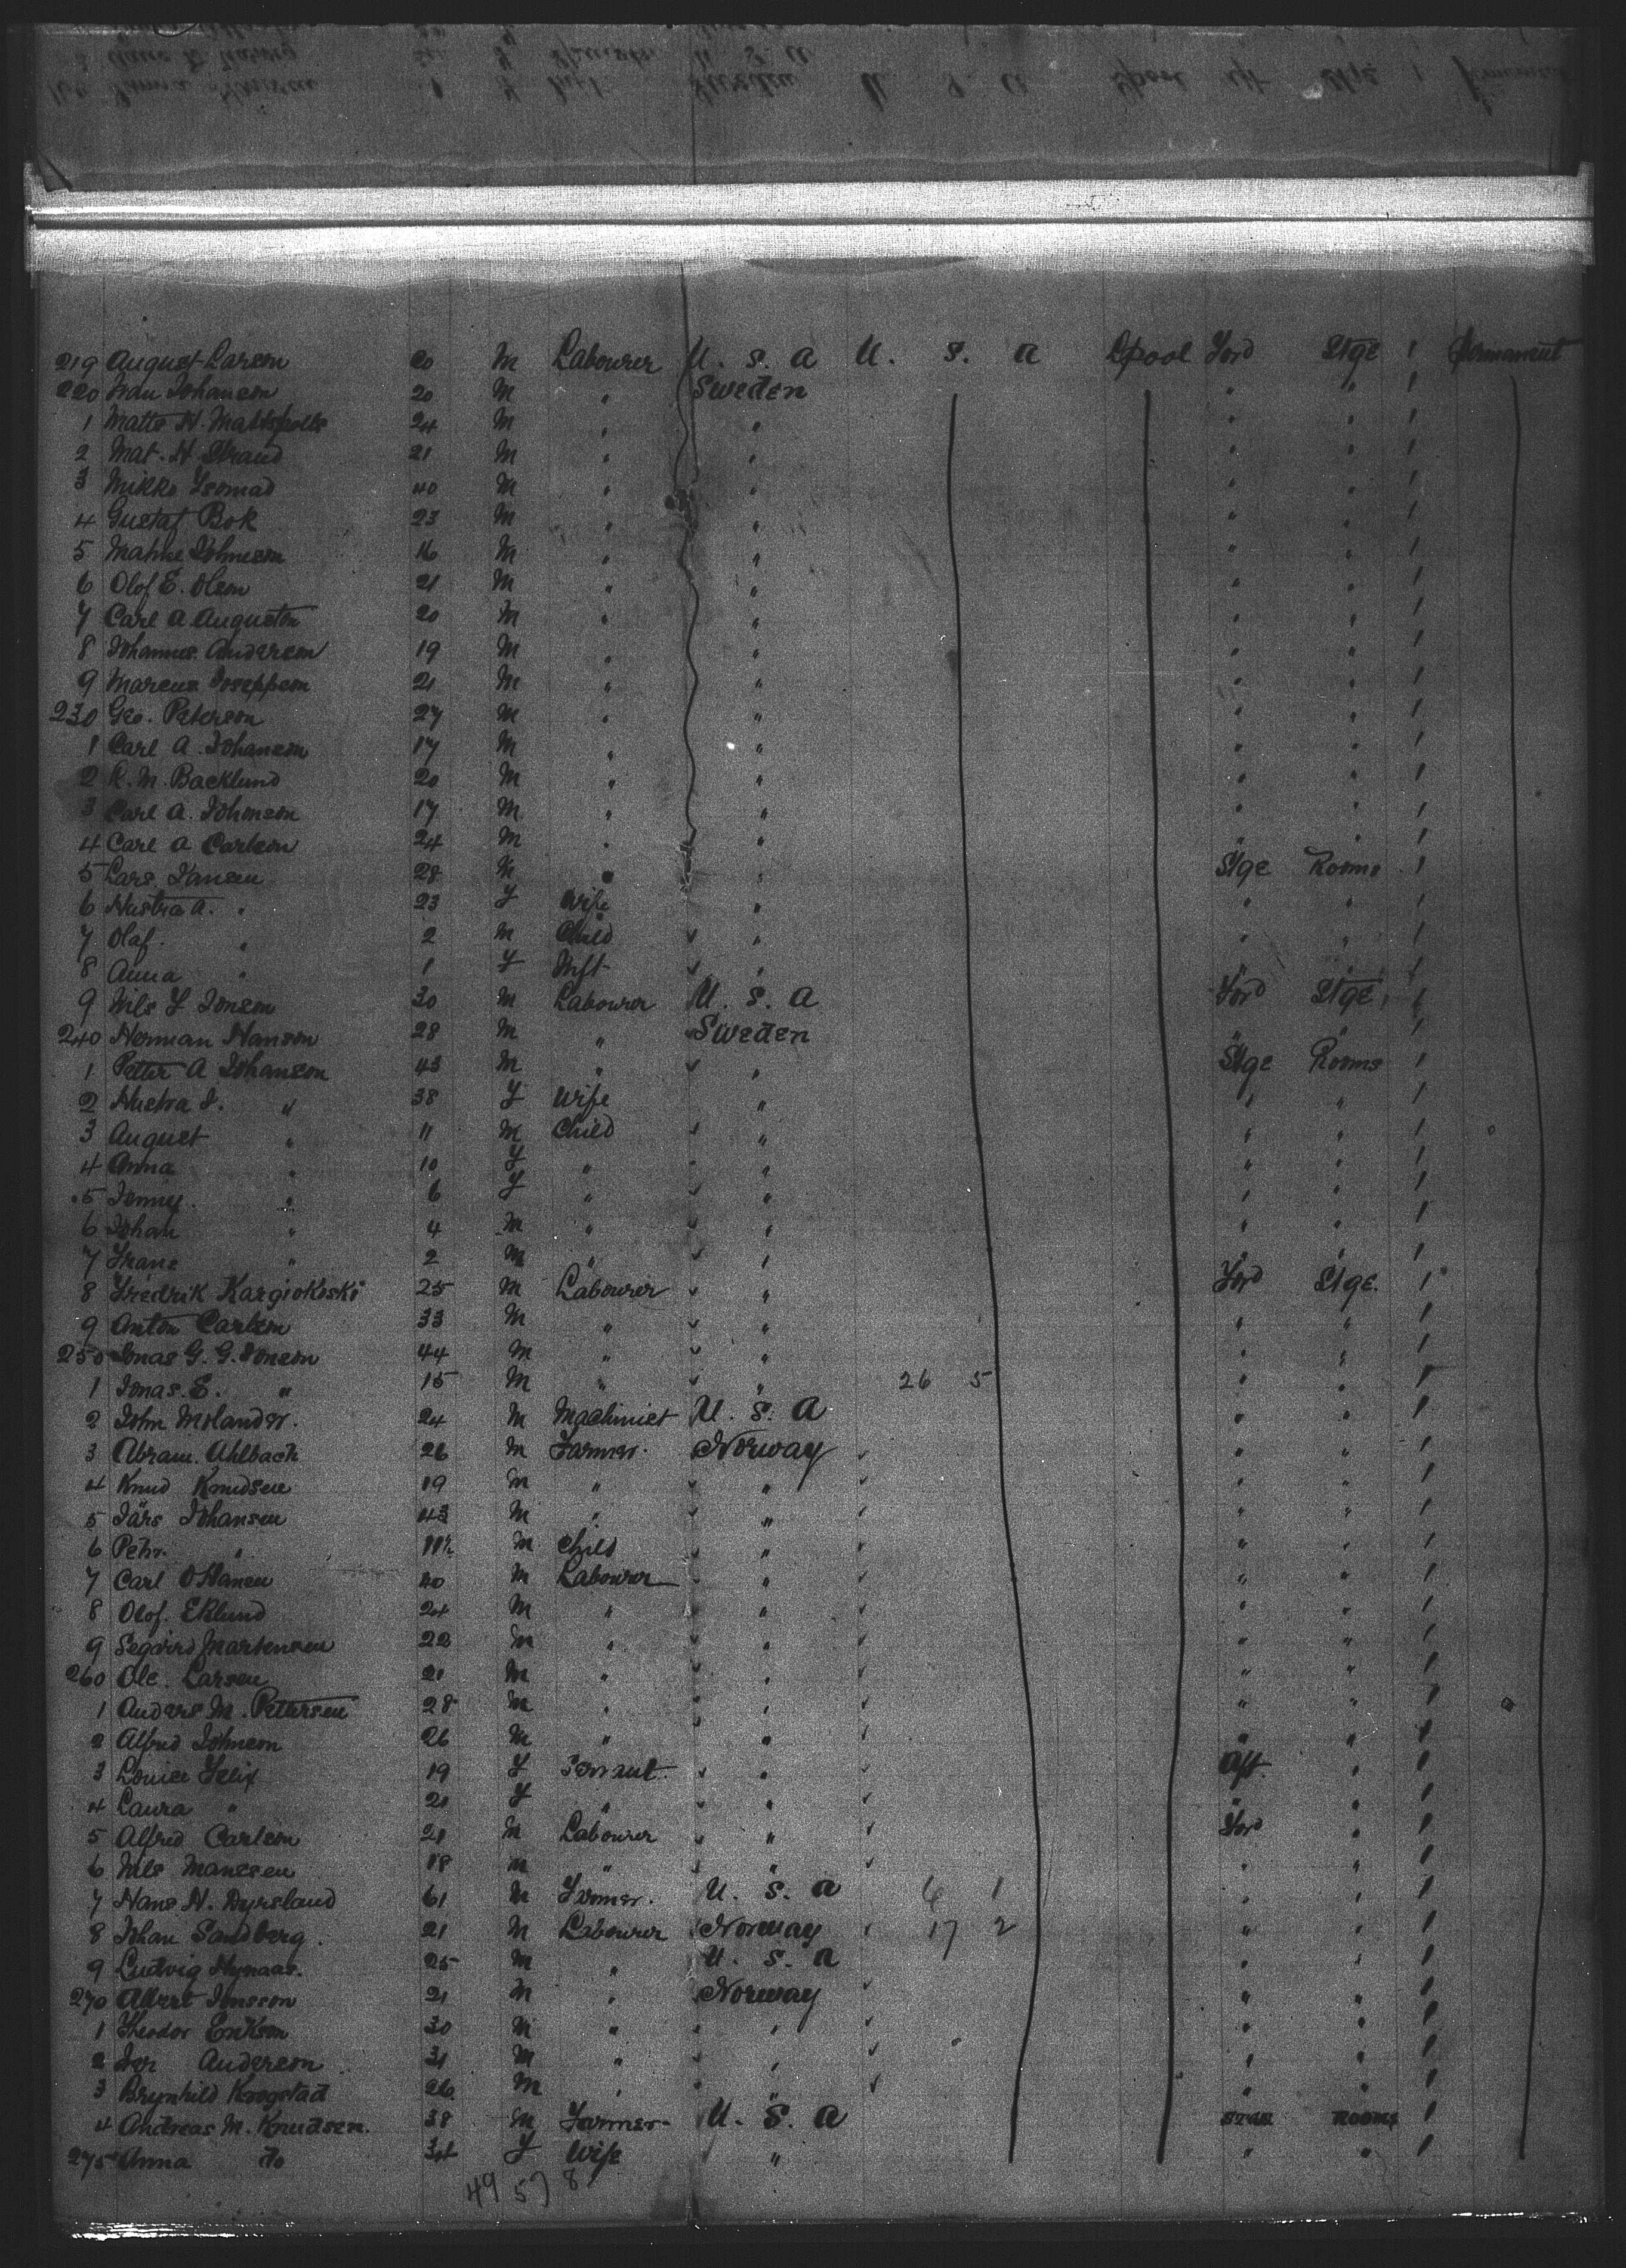 219 August Larson 20 M Labourer U. S. A U. S. A Lpool Ford Stge 1 Permanent
220 Johanson 20 M " Sweden " " 1
1 Matts H. 24 M " " " " 1
2 Mat. H. Strand 21 M " " " " 1
3 Mikko 40 M " " " " 1
4 Gustaf Bok 23 M " " " " 1
5 Johnson 16 M " " " " 1
6 Olof E. Olson 21 M " " " " 1
7 Carl A Auguston 20 M " " " " 1
8 Johannes Anderson 19 M " " " " 1
9 Marcus Joseppson 21 M " " " " 1
230 Geo. Peterson 27 M " " " " 1
1 Carl A. Johanson 17 M " " " " 1
2 K. M. Backlund 20 M " " " " 1
3 Carl A. Johonson 17 M " " " " 1
4 Carl A Carlson 24 M " " " " 1
5 Lars Jansen 28 M " " Stge Rooms 1
6 Hustra A. " 23 F Wife " " " 1
7 Olaf " 2 M Child " " " 1
8 Anna " 1 F Inft " " " 1
9 Nils F Jonson 30 M Labourer U. S. A Ford Stge 1
240 Herman Hanson 28 M " Sweden " " 1
1 Petter A Johanson 43 M " " Stge Rooms 1
2 Hustra J. " 38 F Wife " " " 1
3 August " 11 M Child " " " 1
4 Anna " 10 F " " " " 1
5 Jenny " 6 F " " " " 1
6 Johan " 4 M " " " " 1
7 Frans " 2 M " " " " 1
8 Fredrik Kargiokoski 25 M Labourer " Ford Stge 1
9 Anton Carlson 33 M " " " " 1
250 Jonas G. G. Jonson 44 M " " " " 1
1 Jonas. E. " 15 M " " 26 5 " " 1
2 John Molander. 24 M Machinist U. S. A " " 1
3 Abram. Ahlbach 26 M Farmer. Norway " " 1
4 Knud Knudsen 19 M " " " " 1
5 Lars Johansen 43 M " " " " 1
6 Pehr. " 11½ M Child " " " 1
7 Carl O Hansen 40 M Labourer " " " 1
8 Olof. Eklund 24 M " " " " 1
9 Martensen 22 M " " " " 1
260 Ole. Larsen 21 M " " " " 1
1 Anders M. Petersen 28 M " " " " 1
2 Alfred Johnson 26 M " " " " 1
3 Louise Felix 19 F Servant " Aft. " 1
4 Laura " 21 F " " " " 1
5 Alfred Carlson 21 M Labourer " Ford " 1
6 Nils Manssen 18 M " " " " 1
7 Hans N. Dyrsland 61 M Farmer. U. S. A 6 1 " " 1
8 Johan Sandberg. 21 M Labourer Norway 17 2 " " 1
9 Ludvig Hynaas. 25 M " U. S. A " " 1
270 Albert Jonsson 21 M " Norway " " 1
1 Theodor Erikson 30 M " " " " 1
2 Iver Anderson 31 M " " " " 1
3 Brynhild Krogstad 26 M " " " " 1
4 Andreas M. Knudsen. 38 M Farmer U. S. A Stge Rooms 1
275 Anna do 34 F Wife " " " 1
49 57 8